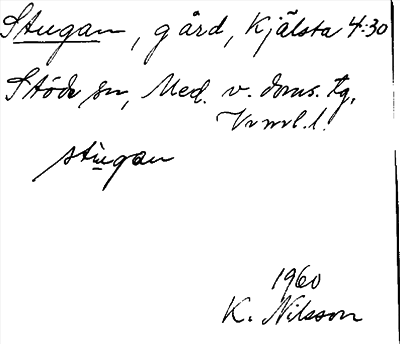 Stugan, gård, Kjälsta 4:30
Stöde sn, Med. v. doms. tg.
Vrml. l.
stugan
1960
K. Nilsson